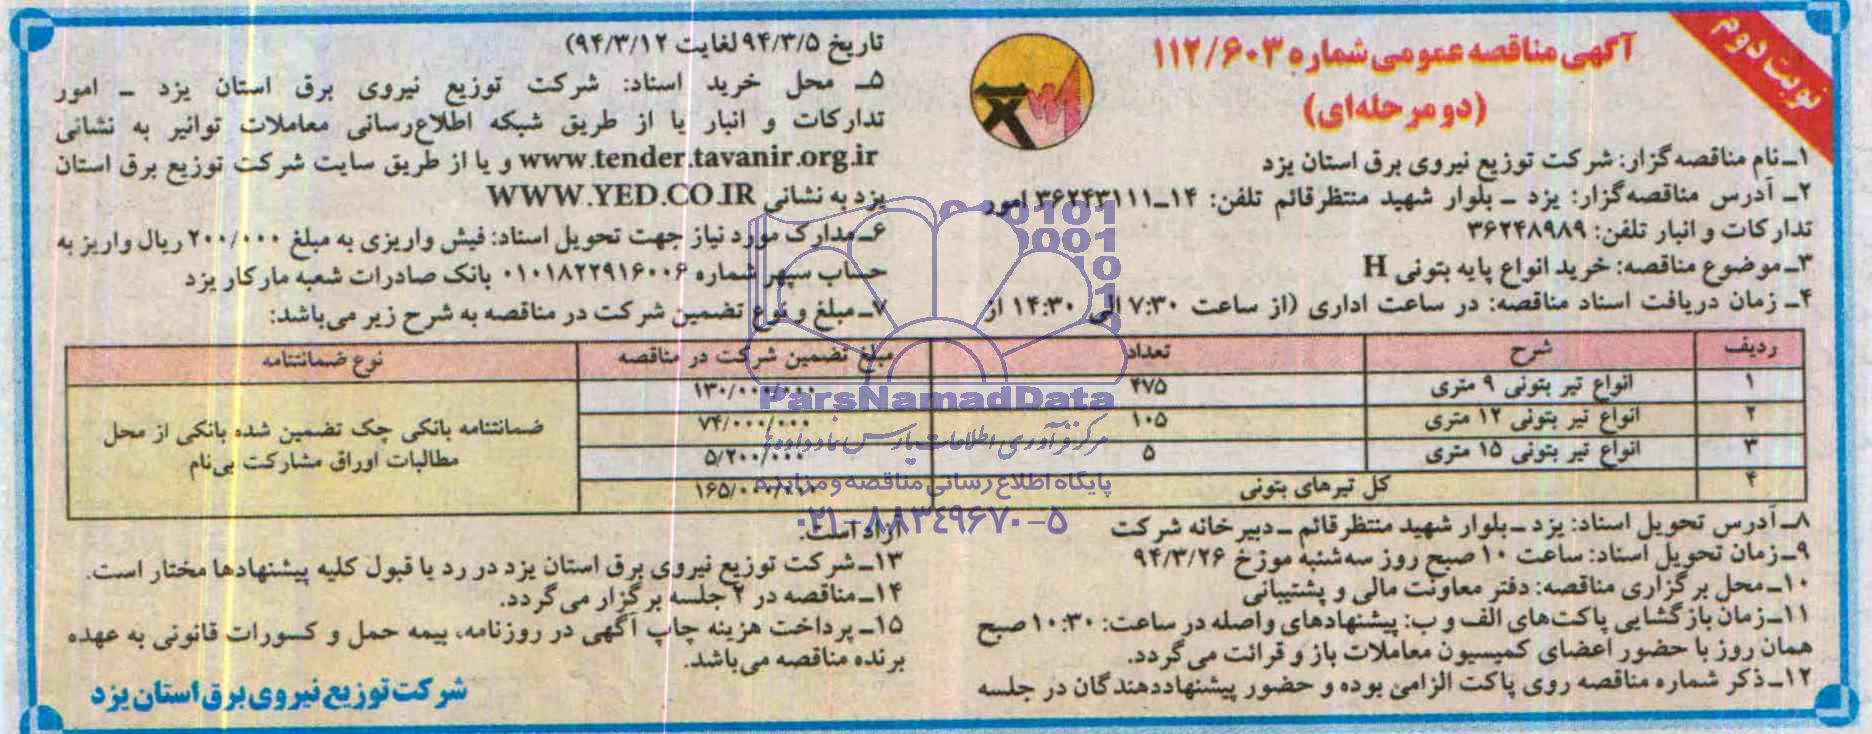 نوبت دوم
آگهی مناقصه عمومی شماره ۱۱۲/۶۰۳
(دو مرحله‌ای)
۱ـ نام مناقصه گزار: شرکت توزیع نیروی برق استان یزد
۲ـ آدرس مناقصه‌گزار: یزد ـ بلوار شهید منتظرقائم تلفن: ۱۴ـ۳۶۲۴۳۱۱۱ امور
تدارکات و انبار تلفن: ۳۶۲۴۸۹۸۹
۳ـ موضوع مناقصه: خرید انواع پایه بتونی H
۴ـ زمان دریافت اسناد مناقصه: در ساعت اداری (از ساعت ۷:۳۰ الی ۱۴:۳۰ از
تاریخ ۹۴/۳/۵ لغایت ۹۴/۳/۱۲)
۵ـ محل خرید اسناد: شرکت توزیع نیروی برق استان یزد ـ امور
تدارکات و انبار یا از طریق شبکه اطلاع‌رسانی معاملات توانیر به نشانی
www.tender.tavanir.org.ir و یا از طریق سایت شرکت توزیع برق استان
یزد به نشانی WWW.YED.CO.IR
۶ـ مدارک مورد نیاز جهت تحویل اسناد: فیش واریزی به مبلغ ۲۰۰/۰۰۰ ریال واریز به
حساب سپهر شماره ۰۱۰۱۸۲۲۹۱۶۰۰۶ بانک صادرات شعبه مارکار یزد
۷ـ مبلغ و نوع تضمین شرکت در مناقصه به شرح زیر می‌باشد:
ردیف شرح تعداد مبلغ تضمین شرکت در مناقصه نوع ضمانتنامه
۱ انواع تیر بتونی ۹ متری ۴۷۵ ۱۳۰/۰۰۰/۰۰۰
۲ انواع تیر بتونی ۱۲ متری ۱۰۵ ۷۴/۰۰۰/۰۰۰
۳ انواع تیر بتونی ۱۵ متری ۵ ۵/۲۰۰/۰۰۰
۴ کل تیرهای بتونی ۱۶۵/۰۰۰/۰۰۰
ضمانتنامه بانکی چک تضمین شده بانکی از محل
مطالبات اوراق مشارکت بی‌نام
۸ـ آدرس تحویل اسناد: یزد ـ بلوار شهید منتظرقائم ـ دبیرخانه شرکت
۹ـ زمان تحویل اسناد: ساعت ۱۰ صبح روز سه‌شنبه مورخ ۹۴/۳/۲۶
۱۰ـ محل برگزاری مناقصه: دفتر معاونت مالی و پشتیبانی
۱۱ـ زمان بازگشایی پاکت‌های الف و ب: پیشنهادهای واصله در ساعت: ۱۰:۳۰ صبح
همان روز با حضور اعضای کمیسیون معاملات باز و قرائت می‌گردد.
۱۲ـ ذکر شماره مناقصه روی پاکت الزامی بوده و حضور پیشنهاددهندگان در جلسه
آزاد است.
۱۳ـ شرکت توزیع نیروی برق استان یزد در رد یا قبول کلیه پیشنهادها مختار است.
۱۴ـ مناقصه در ۲ جلسه برگزار می‌گردد.
۱۵ـ پرداخت هزینه چاپ آگهی در روزنامه، بیمه حمل و کسورات قانونی به عهده
برنده مناقصه می‌باشد.
شرکت توزیع نیروی برق استان یزد
ParsNamadData
مرکز فرآوری اطلاعات پارس نماد داده‌ها
پایگاه اطلاع رسانی مناقصه و مزایده
۰۲۱-۸۸۳۴۹۶۷۰-۵